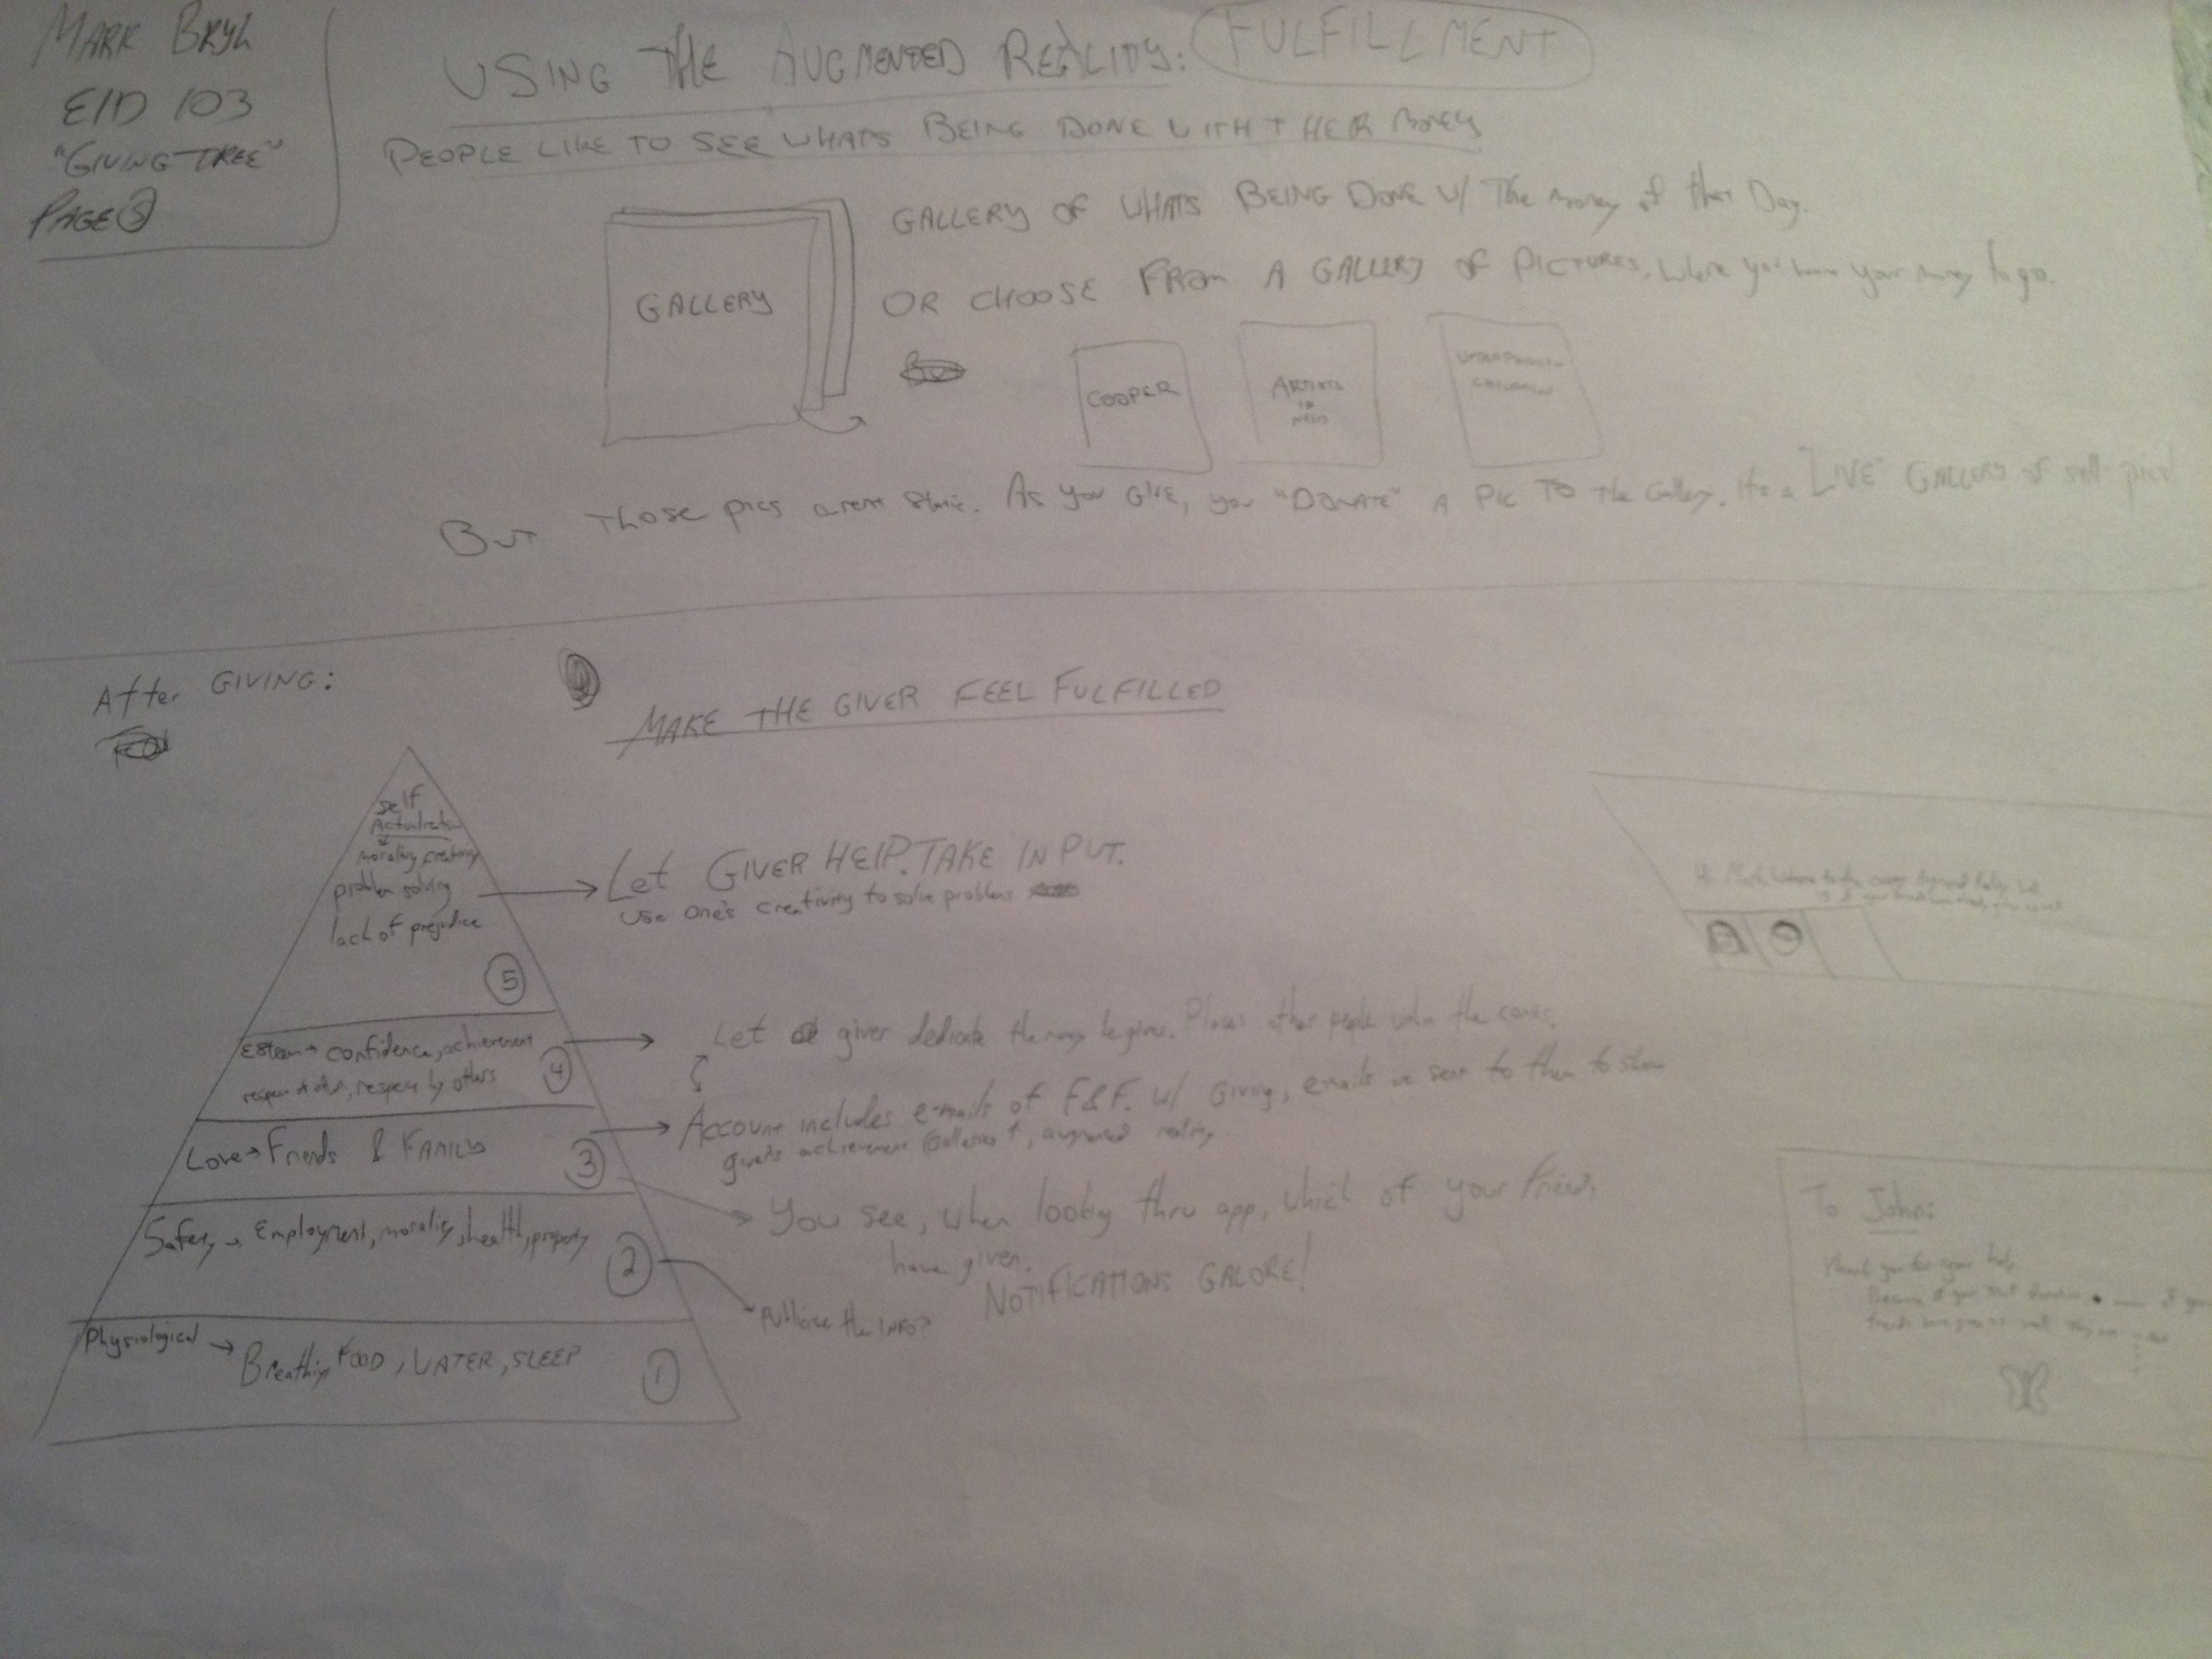 MARK BRYL
EID 103
"GIVING TREE"
PAGE 5
USING THE AUGMENTED REALITY: FULFILLMENT
PEOPLE LIKE TO SEE WHATS BEING DONE WITH THEIR MONEY
GALLERY
GALLERY OF WHATS BEING DONE W/ The money of that Day.
OR CHOOSE FROM A GALLERY OF PICTURES, where you want your money to go.
COOPER
ARTISTS
IN
NEED
CHILDREN
BUT those pics arent static. As you GIVE, you "DONATE" A PIC TO the Gallery. Its a "LIVE" GALLERY of self pics!
After GIVING:
MAKE THE GIVER FEEL FULFILLED
self
Actualization
morality, creativity
problem solving
lack of prejudice
5
Let GIVER HELP. TAKE INPUT.
Use one's creativity to solve problems
Esteem → confidence, achievement
respect of others, respect by others
4
Let giver dedicate the money he gives. Places other people within the causes.
Love → Friends & FAMILY
3
Account includes e-mails of F&F. w/ Giving, emails are sent to them to show
giver's achievement Galleries ↑, augmented reality
You see, when looking thru app, which of your friends
have given.
NOTIFICATIONS GALORE!
Safety → Employment, morality, health, property
2
Publicize the INFO?
Physiological → Breathing, FOOD, WATER, SLEEP
1
Hi Mark
To John:
Thank you for your help.